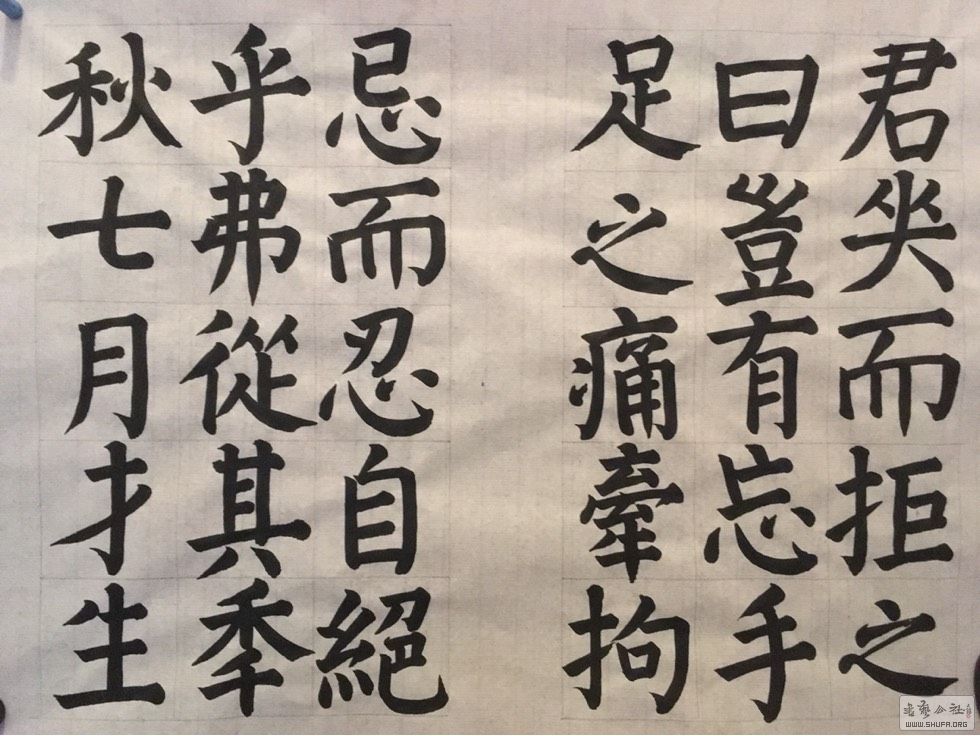 君坐而拒之
曰豈有忘手
足之痛牽拘
忌而忍自絕
乎弗從其秊
秋七月才生
WWW.SHUFA.ORG